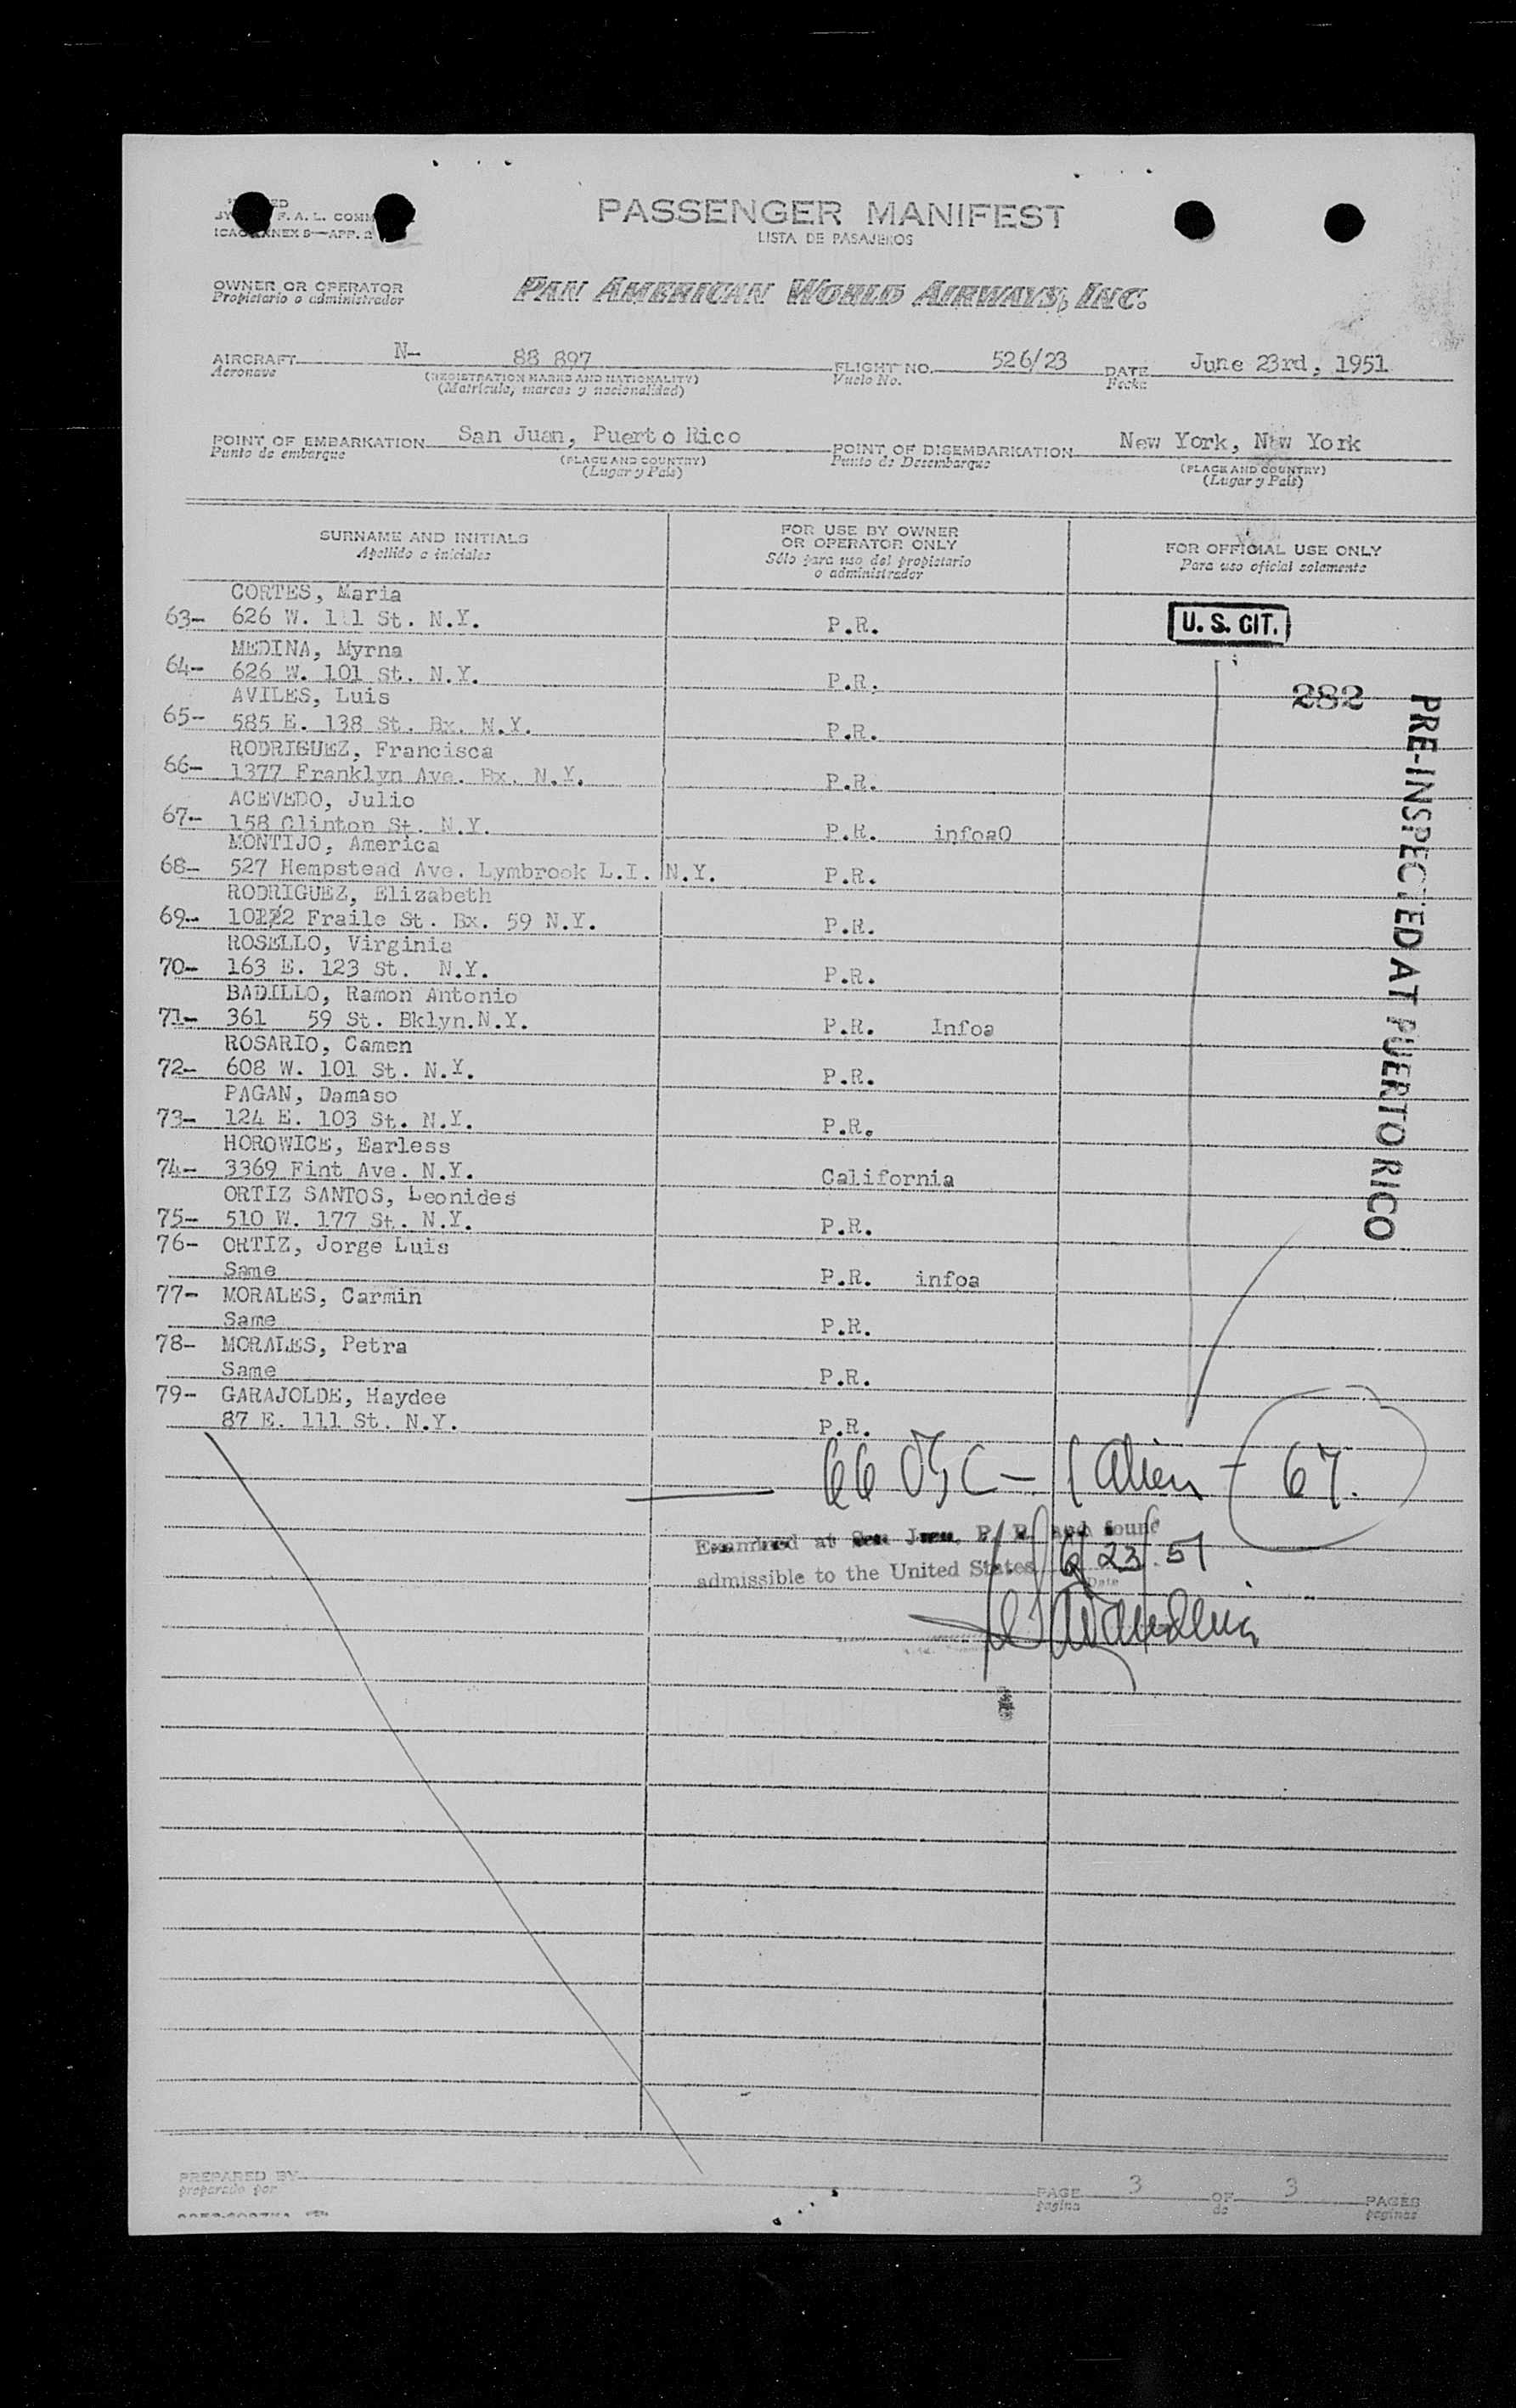 PASSENGER MANIFEST
LISTA DE PASAJEROS
F. A. L. COMM
ICAO ANNEX 9—APP. 2
OWNER OR OPERATOR
Propietario o administrador
PAN AMERICAN WORLD AIRWAYS, INC.
AIRCRAFT N- 88 897 FLIGHT NO. 526/23 DATE June 23rd, 1951
Aeronave (REGISTRATION MARKS AND NATIONALITY) Vuelo No. Fecha
(Matrícula, marcas y nacionalidad)
POINT OF EMBARKATION San Juan, Puerto Rico POINT OF DISEMBARKATION New York, New York
Punto de embarque (PLACE AND COUNTRY) Punto de Desembarque (PLACE AND COUNTRY)
(Lugar y País) (Lugar y País)
SURNAME AND INITIALS
Apellido e iniciales
FOR USE BY OWNER
OR OPERATOR ONLY
Sólo para uso del propietario
o administrador
FOR OFFICIAL USE ONLY
Para uso oficial solamente
CORTES, Maria
63- 626 W. 111 St. N.Y. P.R. U. S. CIT.
MEDINA, Myrna
64- 626 W. 101 St. N.Y. P.R.
282
AVILES, Luis
65- 585 E. 138 St. Bx. N.Y. P.R.
RODRIGUEZ, Francisca
66- 1377 Franklyn Ave. Bx. N.Y. P.R.
ACEVEDO, Julio
67- 158 Clinton St. N.Y. P.R. infoaO
MONTIJO, America
68- 527 Hempstead Ave. Lymbrook L.I. N.Y. P.R.
RODRIGUEZ, Elizabeth
69- Fraile St. Bx. 59 N.Y. P.R.
ROSELLO, Virginia
70- 163 E. 123 St. N.Y. P.R.
BADILLO, Ramon Antonio
71- 361 59 St. Bklyn.N.Y. P.R. Infoa
ROSARIO, Camen
72- 608 W. 101 St. N.Y. P.R.
PAGAN, Damaso
73- 124 E. 103 St. N.Y. P.R.
HOROWICE, Earless
74- 3369 Fint Ave. N.Y. California
ORTIZ SANTOS, Leonides
75- 510 W. 177 St. N.Y. P.R.
76- ORTIZ, Jorge Luis
Same P.R. infoa
77- MORALES, Carmin
Same P.R.
78- MORALES, Petra
Same P.R.
79- GARAJOLDE, Haydee
87 E. 111 St. N.Y. P.R.
PRE-INSPECTED AT PUERTO RICO
66 USC - 1 Alien - 67.
Examined at San Juan, P. R. and found
admissible to the United States 6/23/51
Date
PREPARED BY
preparado por
PAGE 3 OF 3 PAGES
pagina de paginas